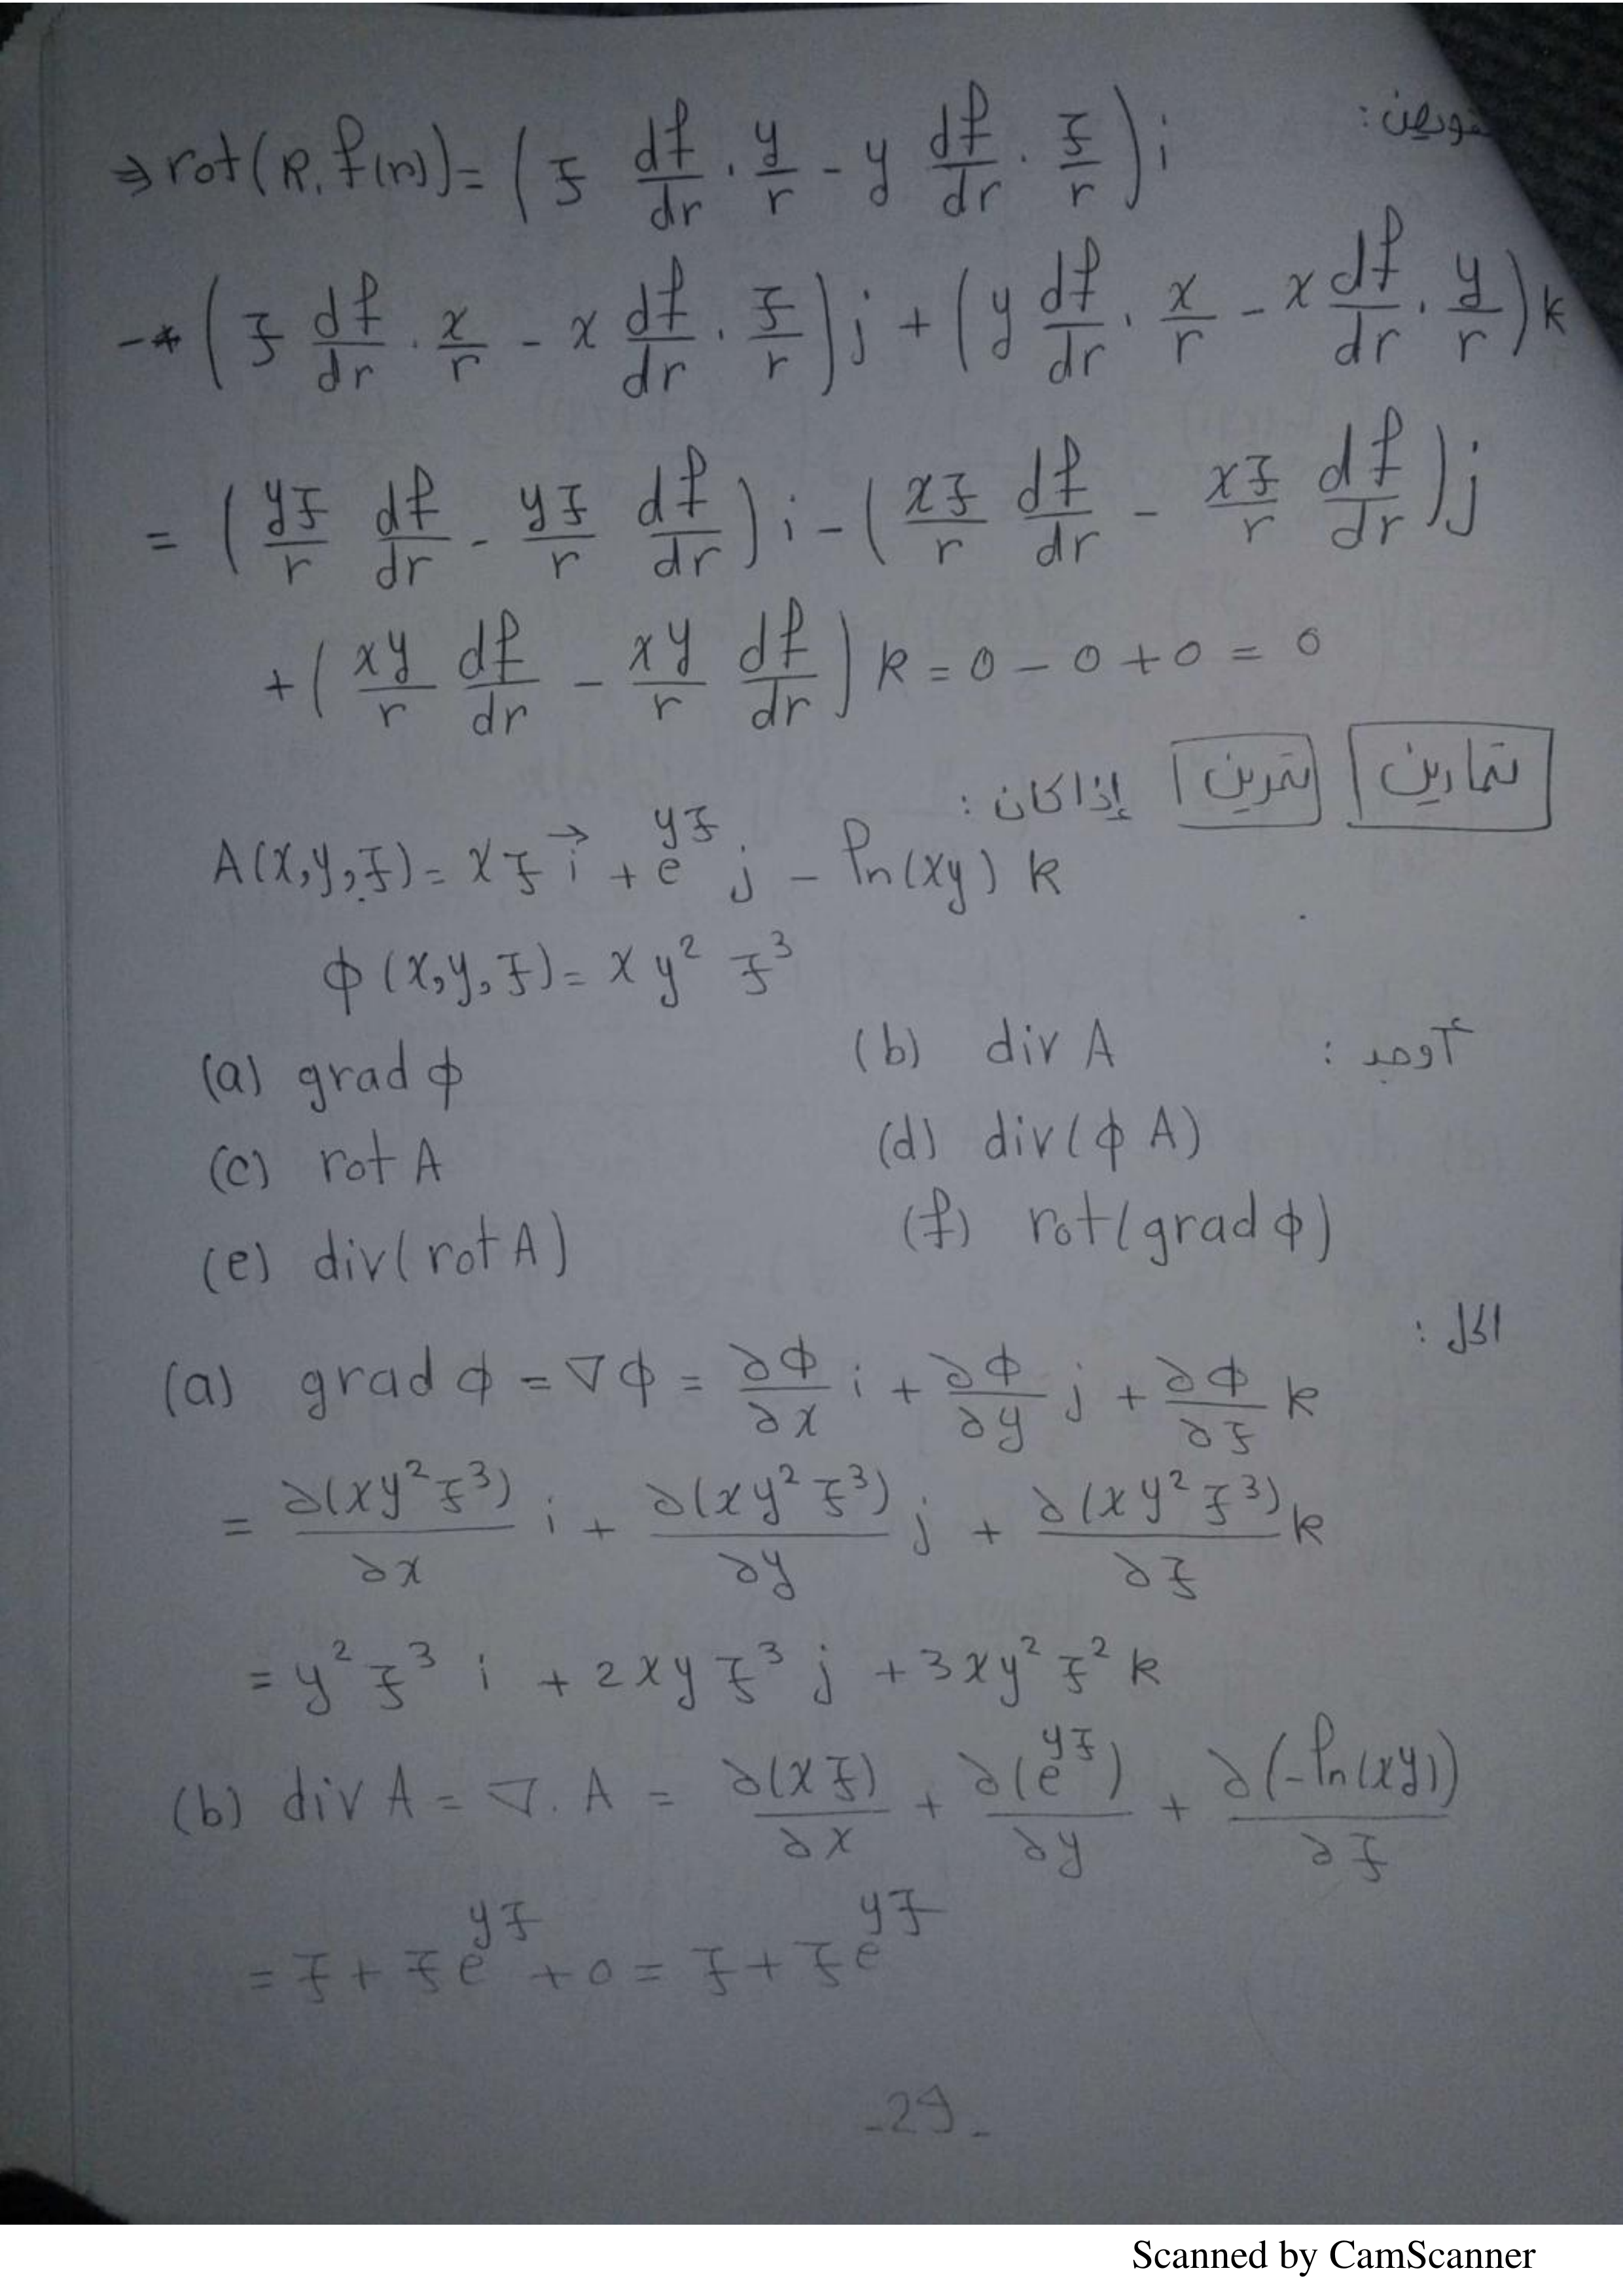 نعوض:
⇒ rot(R.f(r)) = (z df/dr . y/r - y df/dr . z/r) i
- (z df/dr . x/r - x df/dr . z/r) j + (y df/dr . x/r - x df/dr . y/r) k
= (yz/r df/dr - yz/r df/dr) i - (xz/r df/dr - xz/r df/dr) j
+ (xy/r df/dr - xy/r df/dr) k = 0 - 0 + 0 = 0
تمارين تمرين إذا كان :
A(x,y,z) = xz i⃗ + e^{yz} j - ln(xy) k
ϕ(x,y,z) = x y² z³
أوجد :
(a) grad ϕ (b) div A
(c) rot A (d) div(ϕ A)
(e) div(rot A) (f) rot(grad ϕ)
الحل :
(a) grad ϕ = ∇ϕ = ∂ϕ/∂x i + ∂ϕ/∂y j + ∂ϕ/∂z k
= ∂(xy²z³)/∂x i + ∂(xy²z³)/∂y j + ∂(xy²z³)/∂z k
= y²z³ i + 2xyz³ j + 3xy²z² k
(b) div A = ∇. A = ∂(xz)/∂x + ∂(e^{yz})/∂y + ∂(-ln(xy))/∂z
= z + ze^{yz} + 0 = z + ze^{yz}
-29-
Scanned by CamScanner